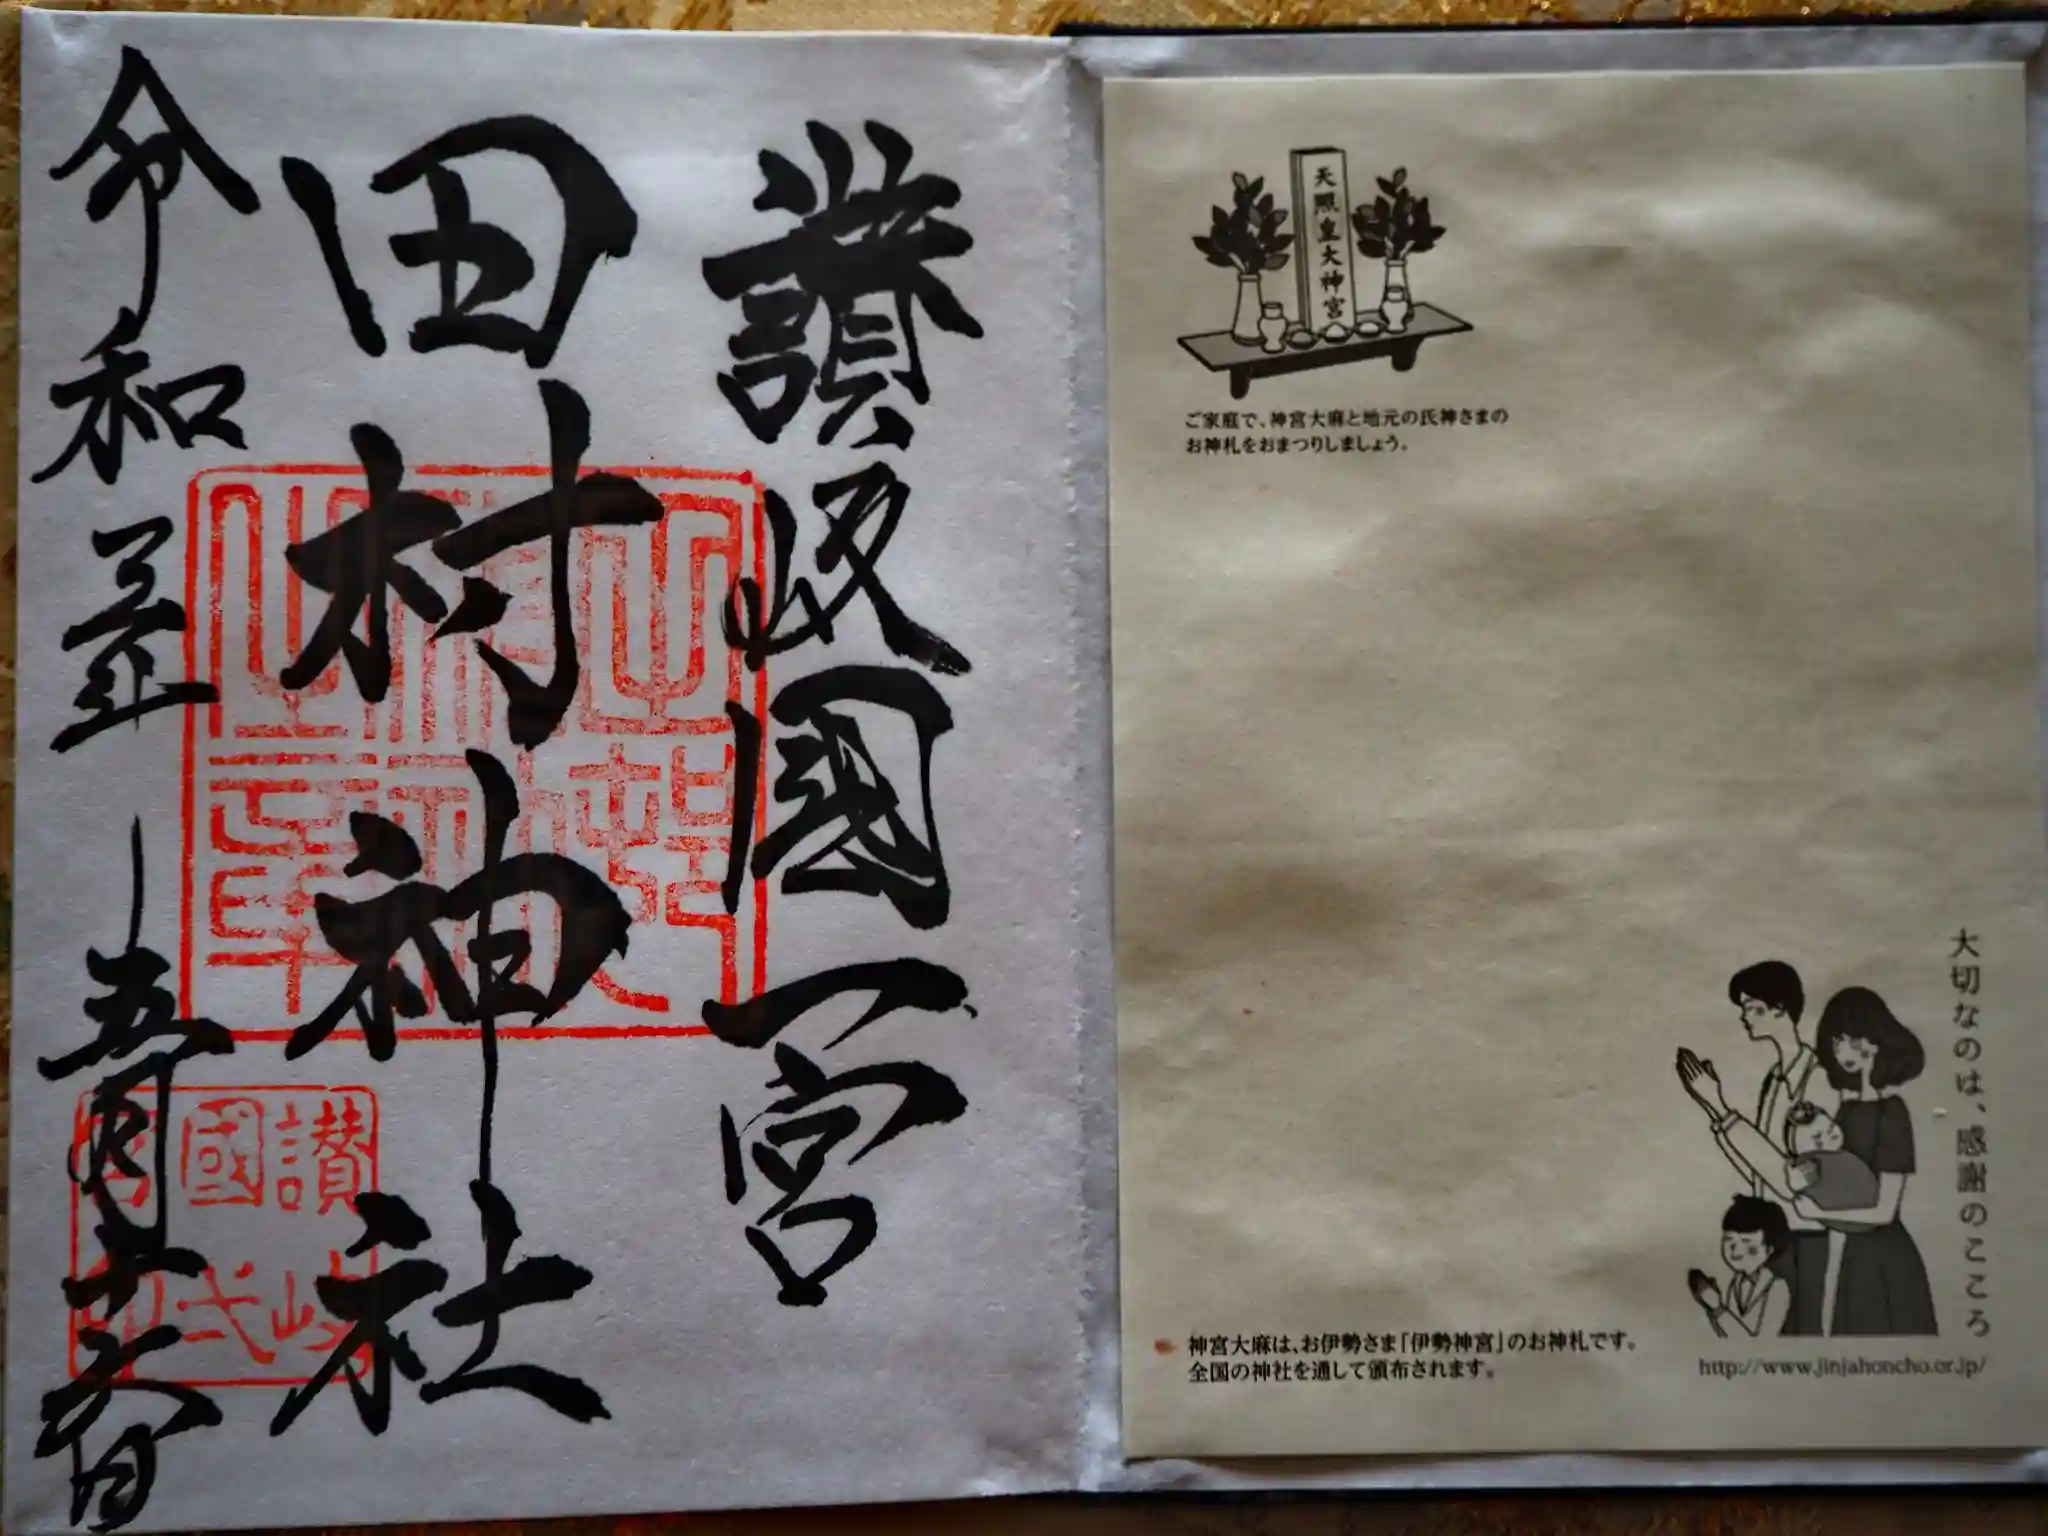 讃岐國一宮
田村神社
令和三年 五月十六日
讃岐
國弌
天照皇大神宮
ご家庭で、神宮大麻と地元の氏神さまの
お神札をおまつりしましょう。
大切なのは、感謝のこころ
神宮大麻は、お伊勢さま「伊勢神宮」のお神札です。
全国の神社を通して頒布されます。
http://www.jinjahoncho.or.jp/